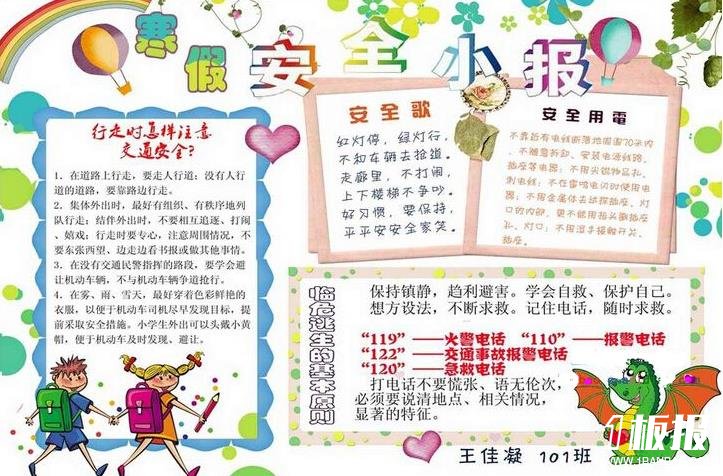 寒假安全小报
行走时怎样注意
交通安全?
1．在道路上行走，要走人行道；没有人行
道的道路，要靠路边行走。
2．集体外出时，最好有组织、有秩序地列
队行走；结伴外出时，不要相互追逐、打闹
、嬉戏；行走时要专心，注意周围情况，不
要东张西望、边走边看书报或做其他事情。
3．在没有交通民警指挥的路段，要学会避
让机动车辆，不与机动车辆争道抢行。
4．在雾、雨、雪天，最好穿着色彩鲜艳的
衣服，以便于机动车司机尽早发现目标，提
前采取安全措施。小学生外出可以头戴小黄
帽，便于机动车及时发现、避让。
安全歌
红灯停，绿灯行，
不和车辆去抢道。
走廊里，不打闹，
上下楼梯不争吵。
好习惯，要保持，
平平安安全家笑。
安全用電
不靠近有电线断落地周围20米内
、不随意拆卸、安装电源线路、
插座等电器；不用尖锐物品扎、
刺电线；不在雷鸣电闪时使用电
器；不用金属体去试探插座、灯
口的内部，更不能用指头戳插座
孔、灯口；不用湿手接触开关、
插座。
临危逃生的基本原则
保持镇静，趋利避害。学会自救、保护自己。
想方设法，不断求救。记住电话，随时求救。
“119”——火警电话 “110”——报警电话
“122”——交通事故报警电话
“120”——急救电话
打电话不要慌张、语无伦次，
必须要说清地点、相关情况，
显著的特征。
王佳凝 101班
板报